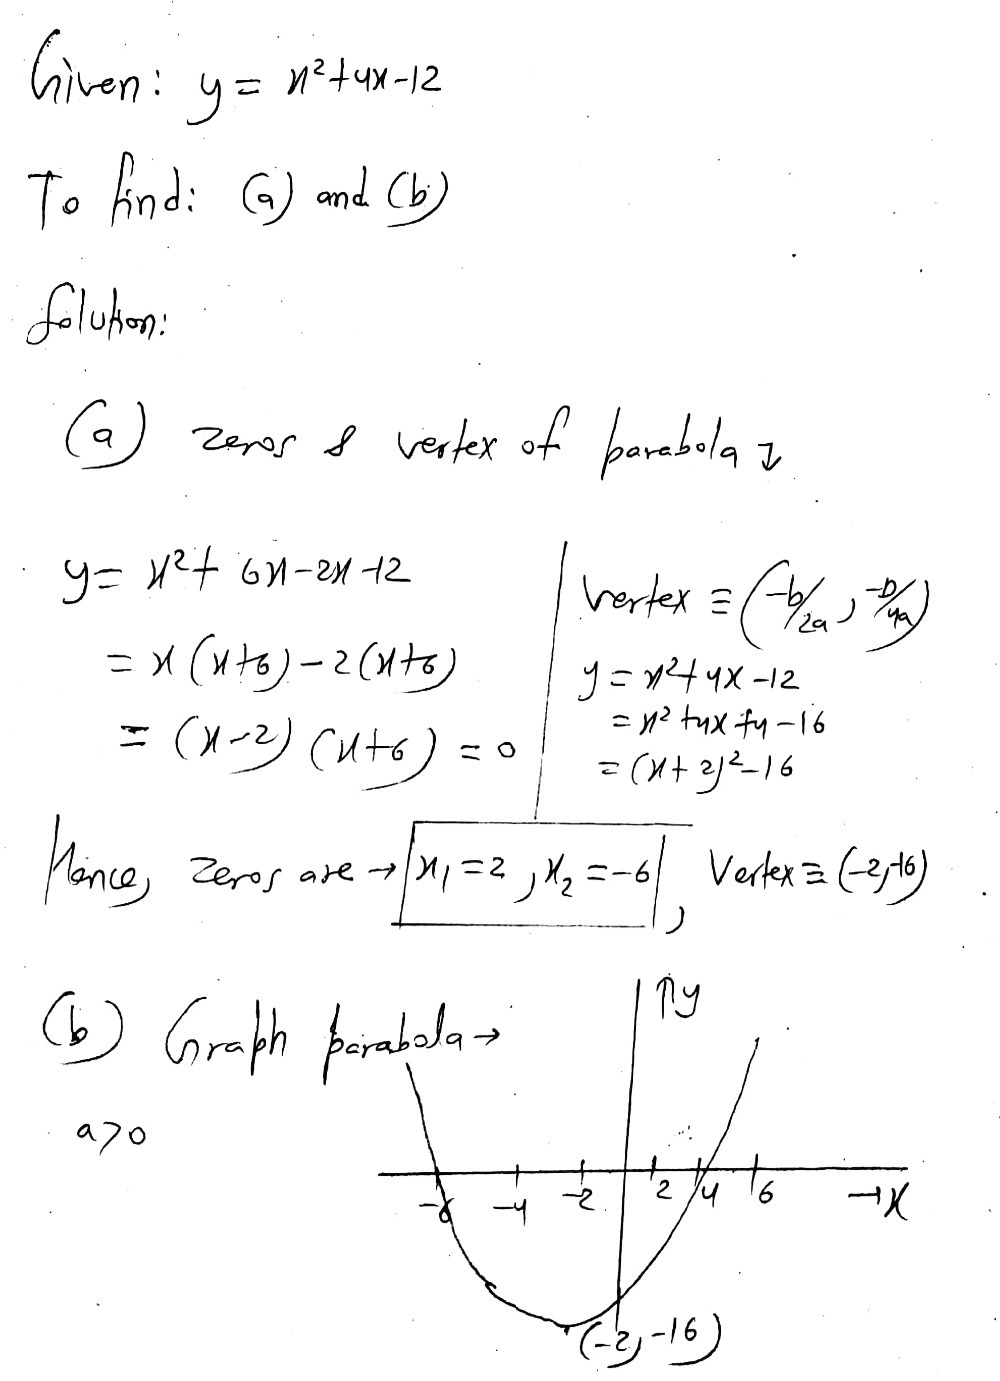 Given: y = x²+4x-12
To find: (a) and (b)
Solution:
(a) zeros & vertex of parabola ↓
y = x²+ 6x-2x-12
= x(x+6)-2(x+6)
= (x-2) (x+6) = 0
Vertex ≡ (-b/2a, -D/4a)
y = x²+4x-12
= x²+4x+4-16
= (x+2)²-16
Hence, zeros are → x₁ = 2, x₂ = -6, Vertex ≡ (-2,-16)
(b) Graph parabola →
↑y
a>0
-6 -4 -2 2 4 6 →x
(-2,-16)